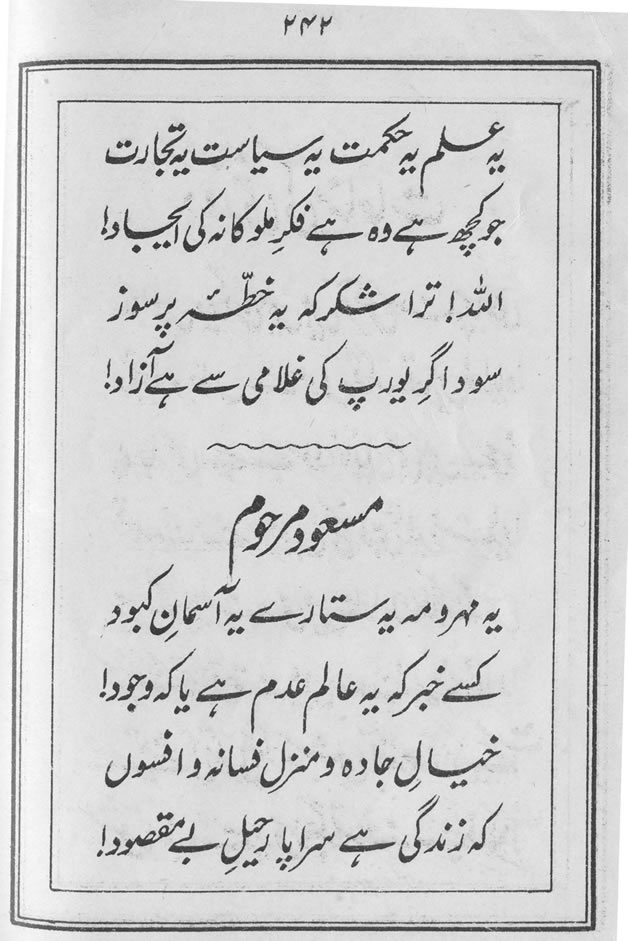 ۲۴۲
یہ علم یہ حکمت یہ سیاست یہ تجارت
جو کچھ ہے وہ ہے فکرِ ملوکانہ کی ایجاد!
اللہ! ترا شکر کہ یہ خطّۂ پر سوز
سوداگرِ یورپ کی غلامی سے ہے آزاد!
مسعود مرحوم
یہ مہر و مہ یہ ستارے یہ آسمانِ کبود
کسے خبر کہ یہ عالم عدم ہے یا کہ وجود!
خیالِ جادہ و منزل فسانہ و افسوں
کہ زندگی ہے سراپا رحیلِ بے مقصود!